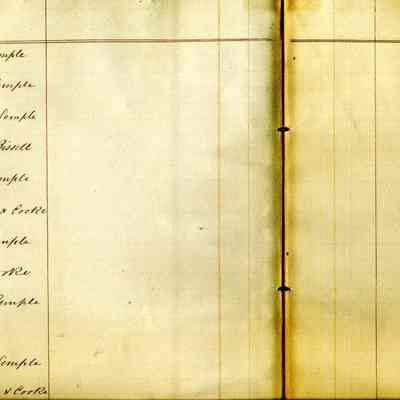 mple
emple
Semple
Bissell
mple
& Cooke
mple
oke
Semple
Semple
& Cooke